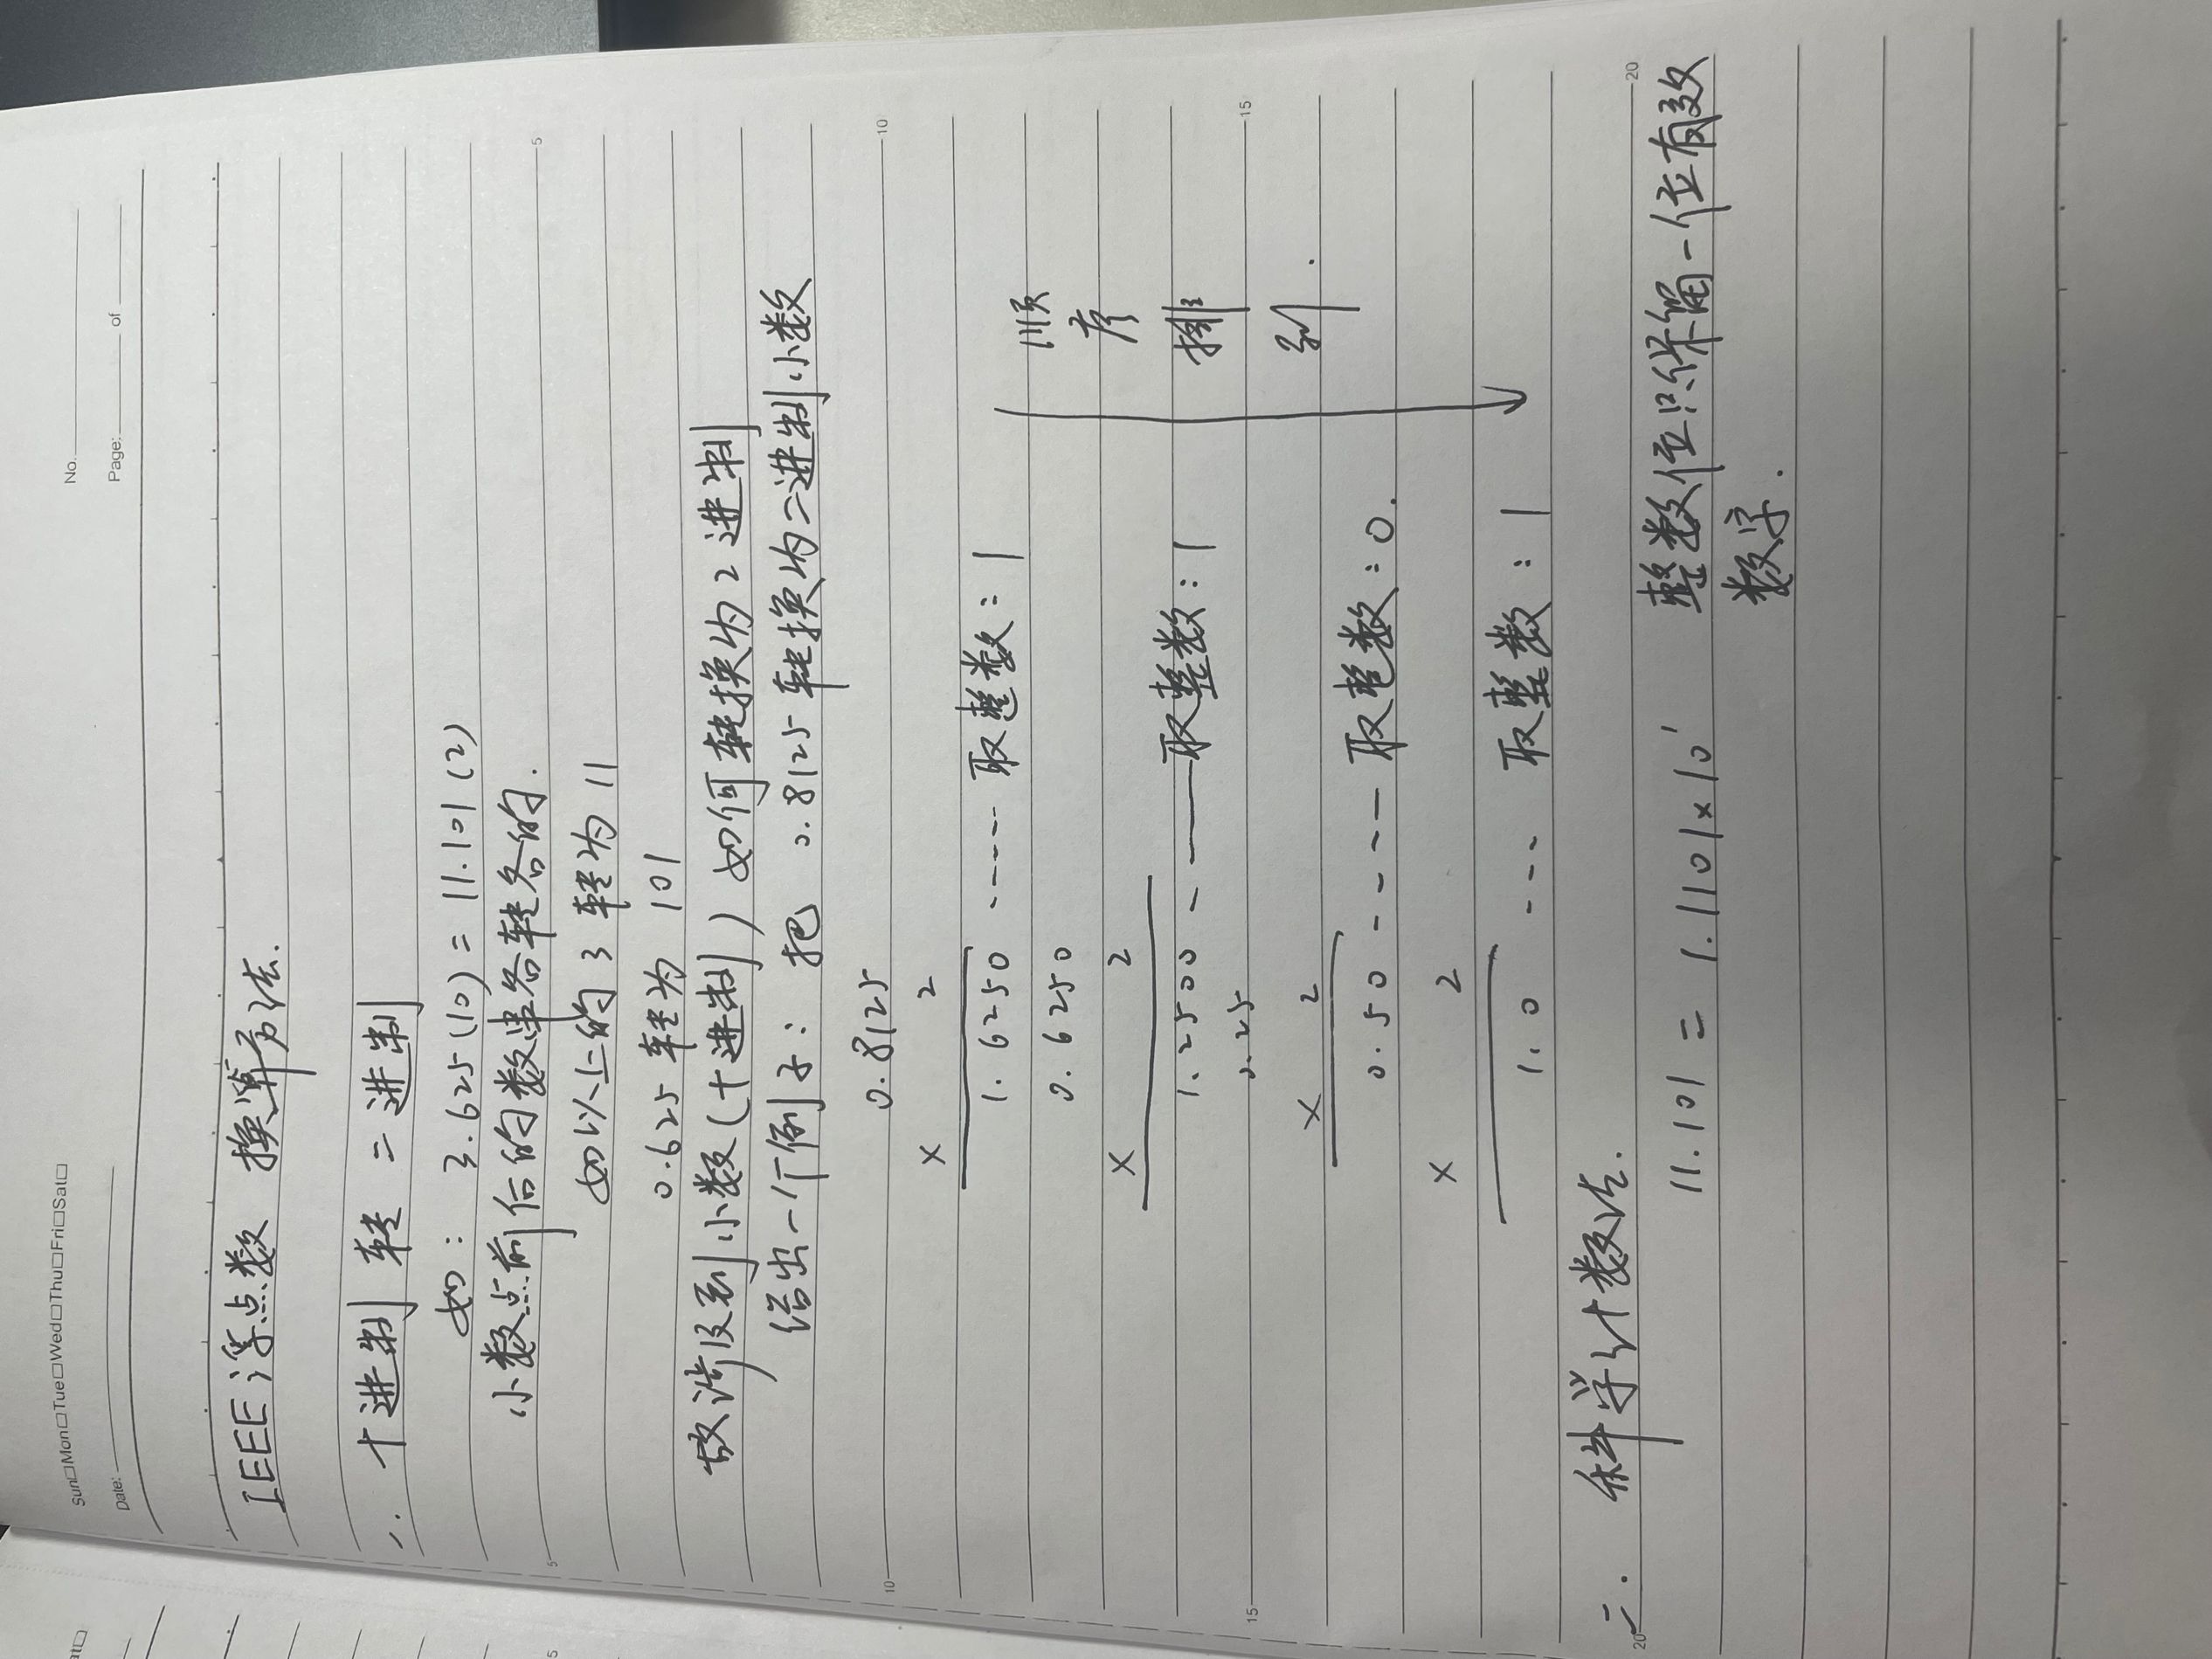 No.
Sun□Mon□Tue□Wed□Thu□Fri□Sat□
Date: Page: of
IEEE浮点数 换算方法.
一. 十进制 转 二进制
如: 3.625(10) = 11.101(2)
小数点前后的数串各转各的.
如以上的 3 转为 11
0.625 转为 101
故涉及到小数(十进制)如何转换为2进制
给出一个例子: 把 0.8125 转换为二进制小数
0.8125
× 2
1.6250 ------ 取整数: 1
0.6250
× 2
1.2500 - —— 取整数: 1
0.25
× 2
0.50 ---- 取整数: 0.
× 2
1.0 ---- 取整数: 1
顺
序
排
列.
二. 科学计数法.
11.101 = 1.1101×10¹ 整数位只保留一位有效
数字.
5
10
15
20
5
10
15
20